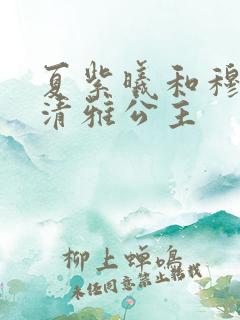 夏紫曦和穆
清雅公主
柳上蝉鸣
未经同意禁止转载